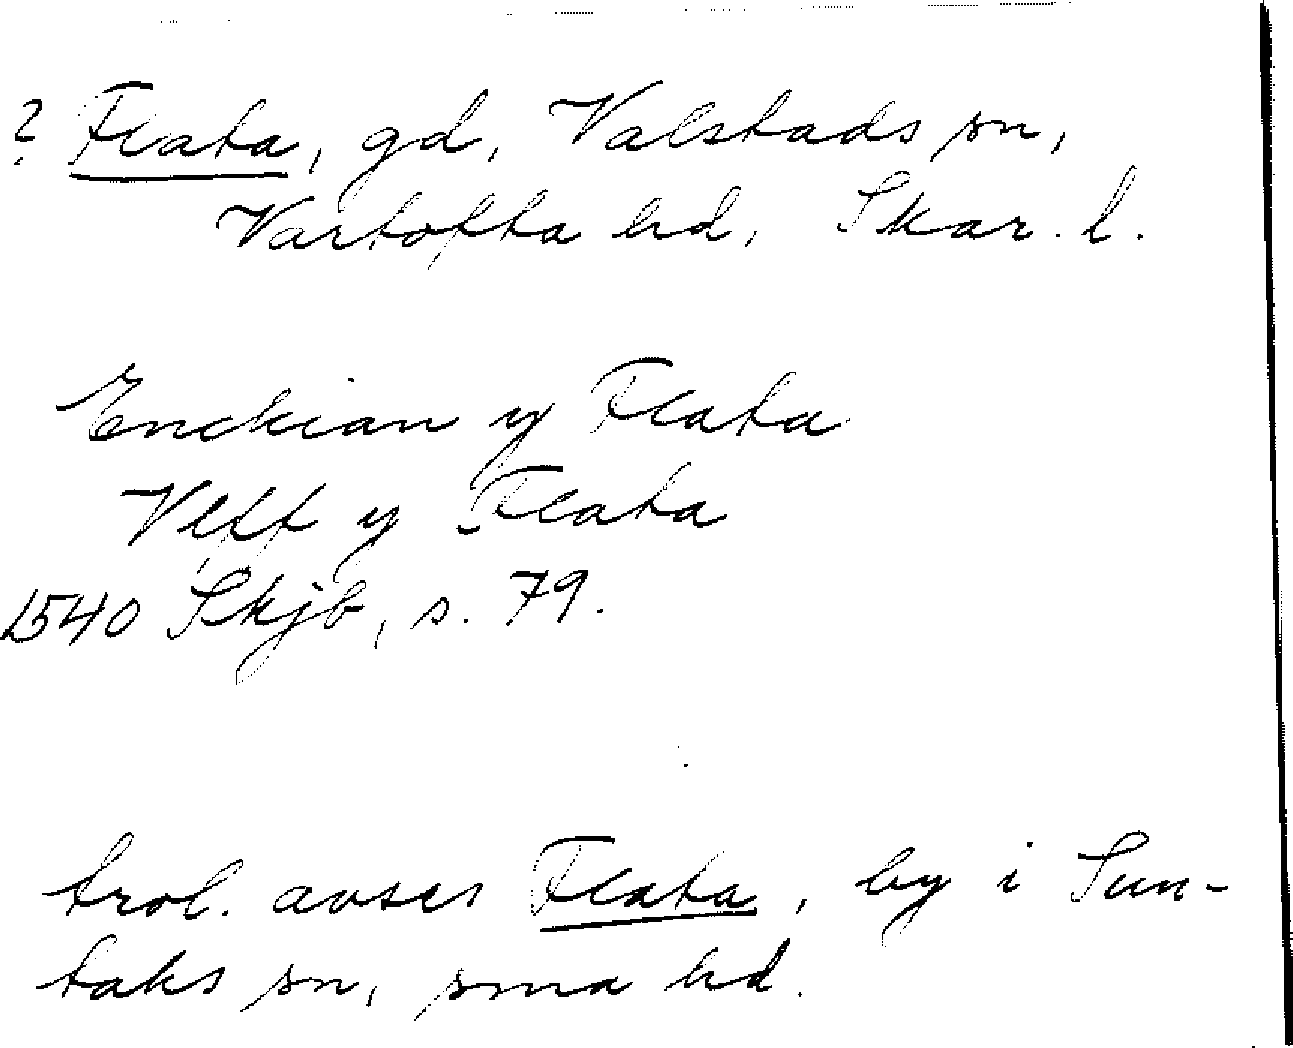 ? Flata, gd, Valstads sn,
Vartofta hd, Skar. l.
Enckian y Flata
Vlff y Flata
1540 Skjb, s. 79.
trol. avses Flata, by i Sun-
taks sn, sma hd.